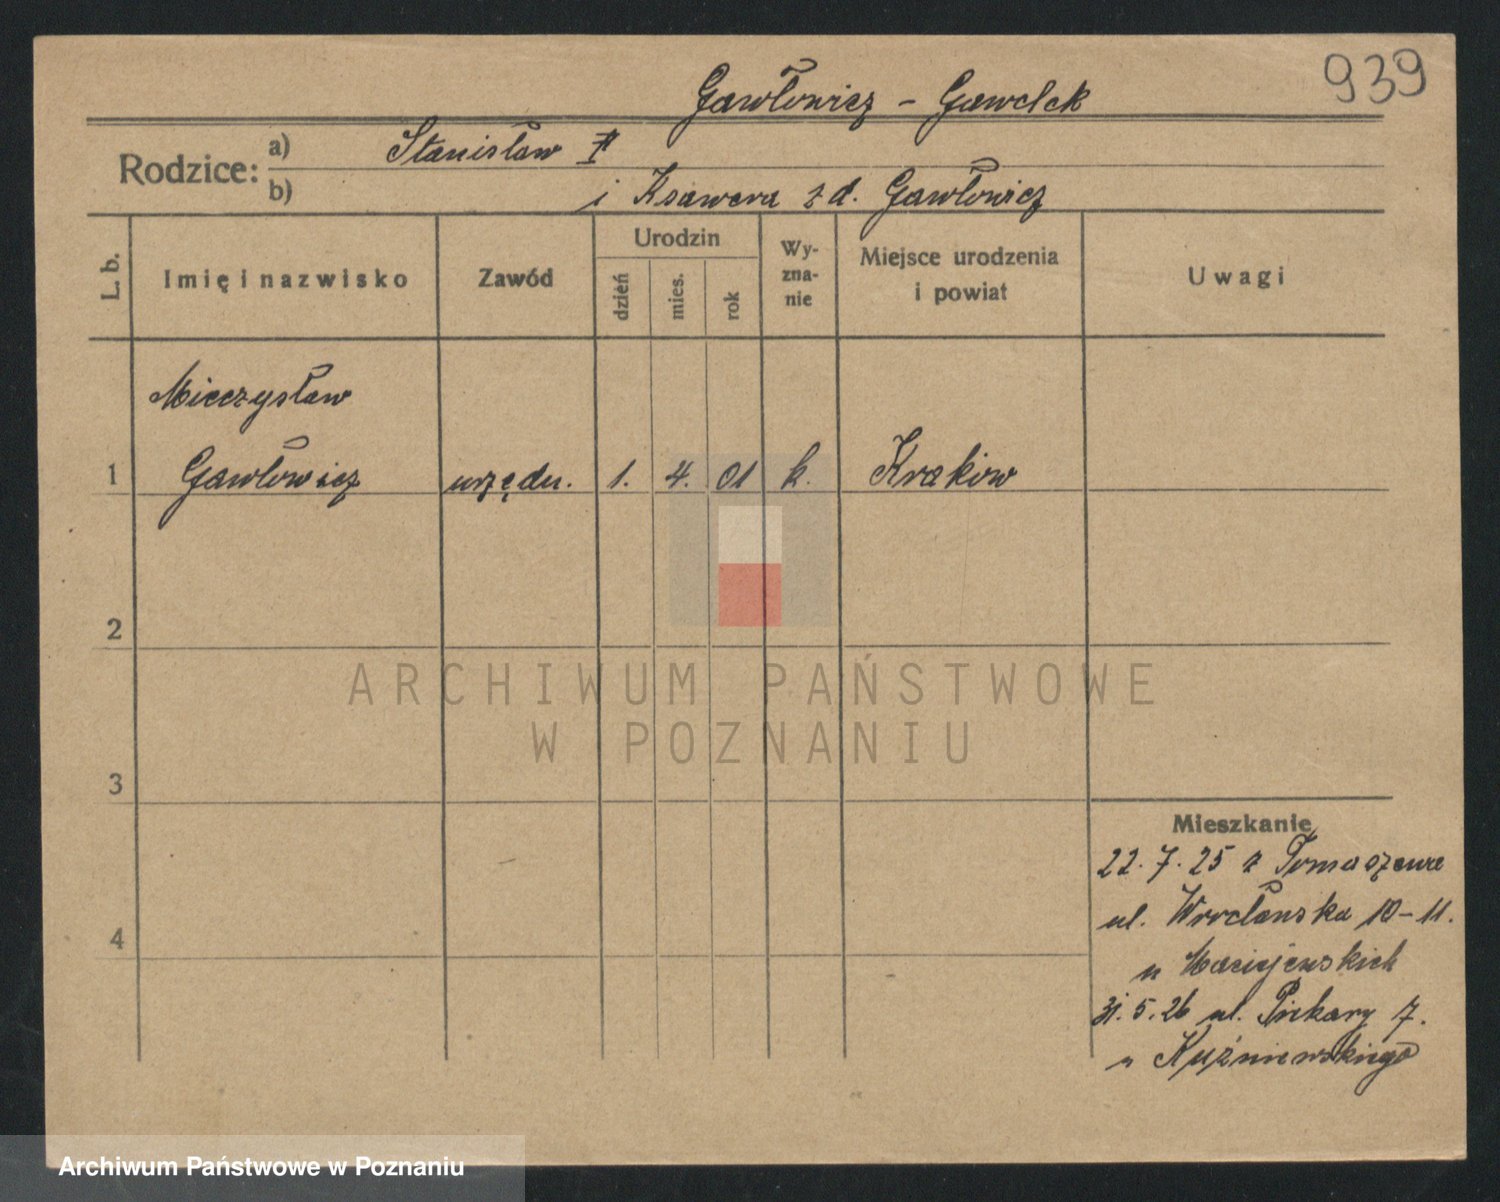 939
Gawłowicz - Gawelek
Rodzice: a) Stanisław
b) i Ksawera z d. Gawłowicz
L. b.
Imię i nazwisko
Zawód
Urodzin
dzień
mies.
rok
Wy-
zna-
nie
Miejsce urodzenia
i powiat
Uwagi
Mieczysław
1 Gawłowicz urzędn. 1. 4. 01 k. Kraków
2
3
4
Mieszkanie
22.7.25 z Tomaszewa
ul. Wrocławska 10-11.
u Maciejewskich
31.5.26 ul. Piekary 7.
u Kuźniewskiego
ARCHIWUM PAŃSTWOWE
W POZNANIU
Archiwum Państwowe w Poznaniu